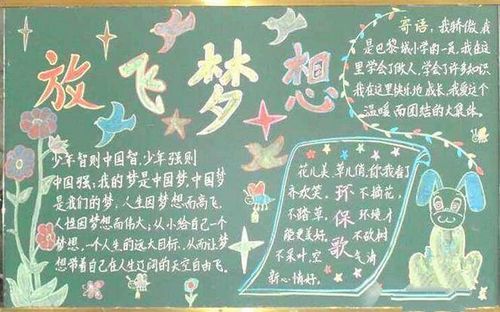 放飞梦想
少年智则中国智,少年强则
中国强;我的梦是中国梦,中国梦
是我们的梦。人生因梦想而高飞,
人性因梦想而伟大;从小给自己一个
梦想,一个人生的远大目标,从而让梦
想带着自己在人生辽阔的天空自由飞。
寄语:我骄傲,我
是巴黎城小学的一员,我在这
里学会了做人,学会了许多知识
我在这里快乐地成长,我爱这个
温暖而团结的大集体。
环保歌
花儿美,草儿俏,你我看了
齐欢笑。不摘花,
不踏草,环境才
能更美好。不砍树
不采叶,空气清
新心情好。